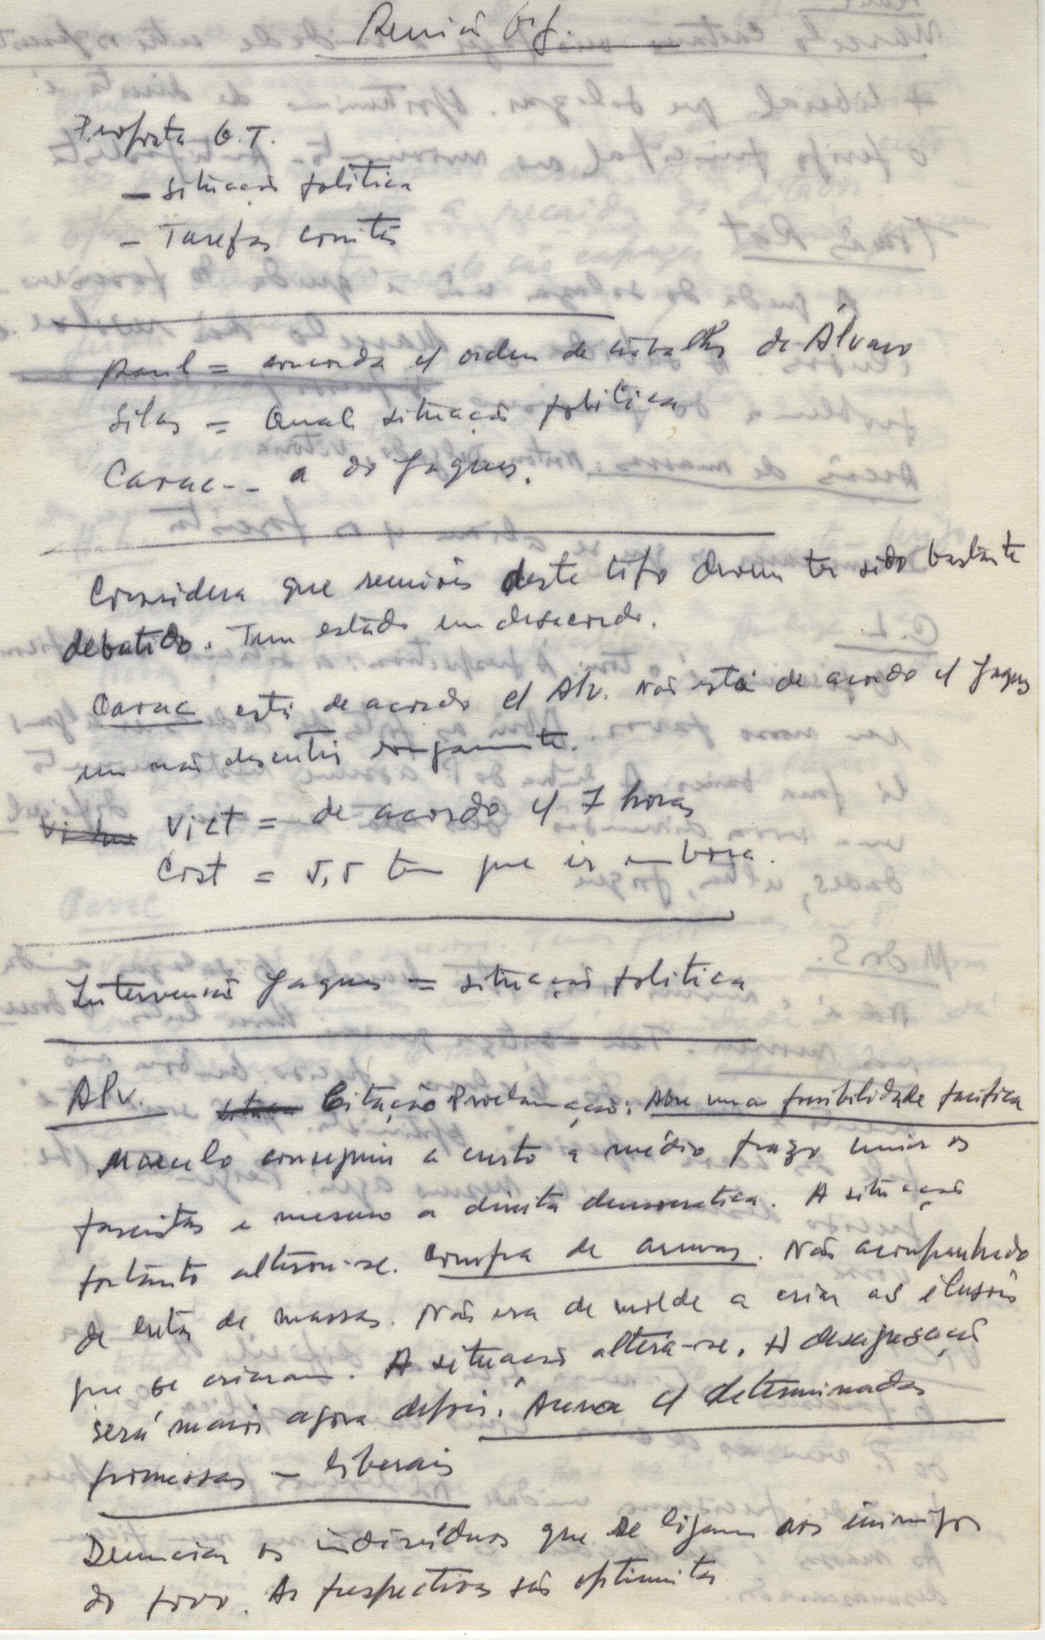 Reunião
Proposta O.T.
- Situação política
- Tarefas comités
Raul = concorda c/ ordem de trabalhos do Álvaro
Silas = Qual situação política
Carac-- a do Jaques.
Considera que reuniões deste tipo devem ter sido bastante
debatido. Tem estado em desacordo.
Carac está de acordo c/ Alv. Não está de acordo c/ Jaques
em não discutir
Vict = de acordo c/ 7 horas
Cost = 5,5 tem que ir embora.
Intervenção Jaques = situação política
Alv. Citação Proclamação: Abre uma possibilidade pacífica
Marcelo conseguiu a curto e médio prazo unir os
fascistas e mesmo a direita democratica. A situação
portanto alterou-se. Compra de armas. Não acompanhado
de luta de massas. Não era de molde a criar as ilusões
que se criaram. A situação altera-se. A desagregação
será maior agora depois. Acena c/ determinadas
promessas - liberais
Denunciar os indivíduos que se ligam aos inimigos
do povo. As perspectivas são optimistas